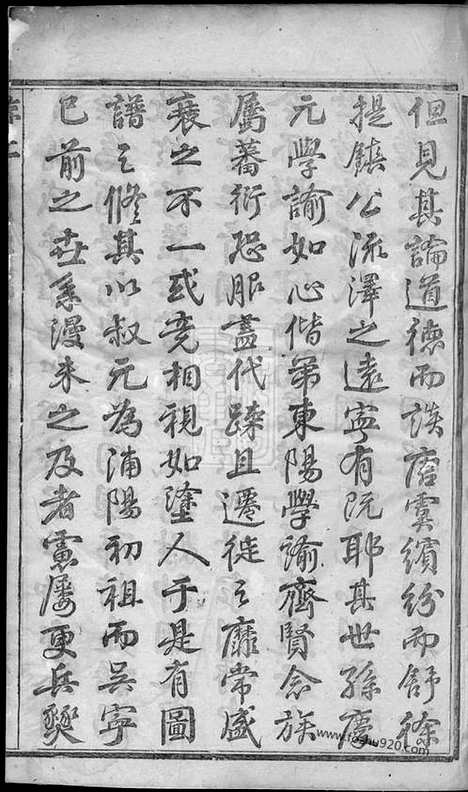 但見其論道德而談唐虞繽紛而舒徐
提鎮公流澤之遠寧有既耶其世孫慶
元學諭如心偕弟東陽學諭齊賢念族
屬蕃衍恐服盡代踈且遷徙之靡常盛
衰之不一或竟相視如塗人于是有圖
譜之修其以叔元為浦陽初祖而吳寧
已前之世系漫未之及者慮屢更兵燹